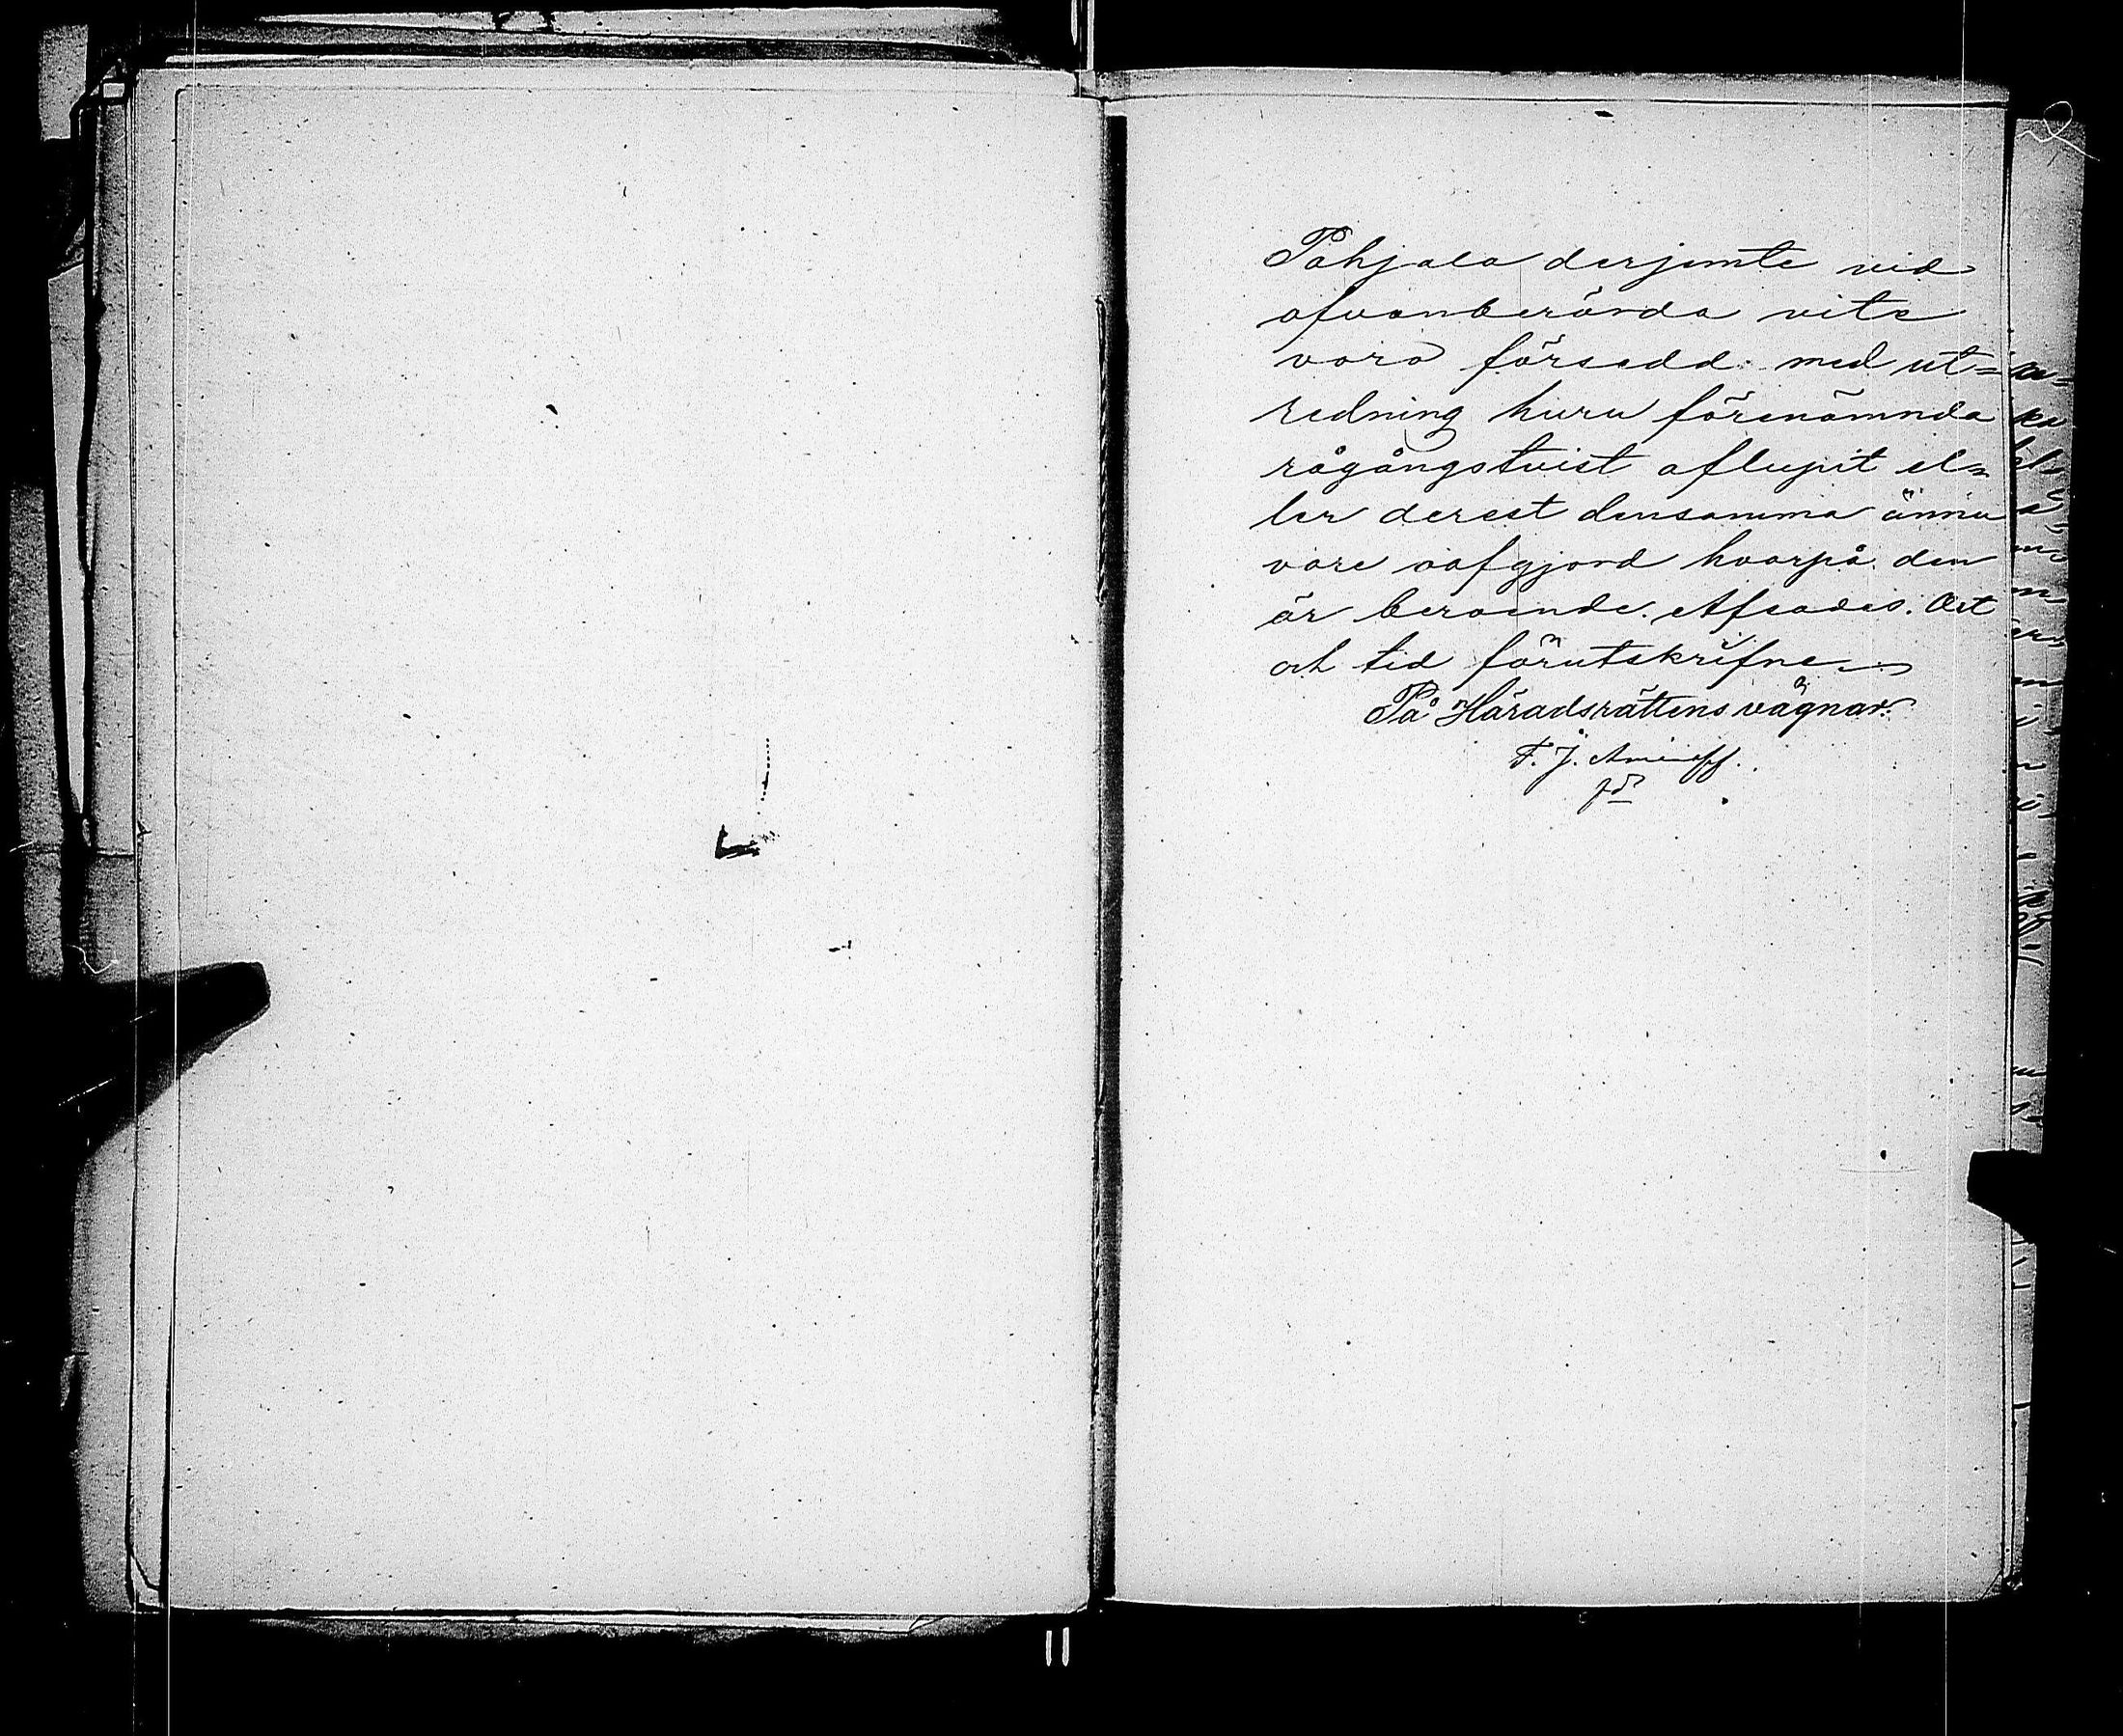 Pohjala derjemte vid
ofvanberörda vite
vara försedd med ut=
redning huru förenämnda
rågångstvist aflupit el=
ler derest densamma ännu
vore oafgjord hvarpå den
är beroende. Afsades. Ort
och tid förutskrifne.
På Häradsrättens vägnar:
F. J. Aminoff.